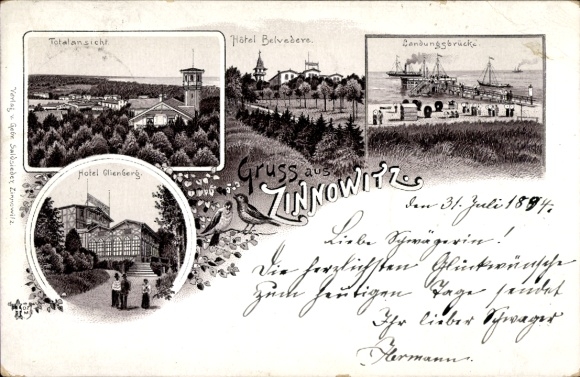 Totalansicht.
Hôtel Belvedere.
Landungsbrücke.
Verlag v. Gebr. Saldsieder, Zinnowitz.
Hotel Glienberg.
Gruss aus
ZINNOWITZ
den 31. Juli 1894.
Liebe Schwägerin!
Die herzlichsten Glückwünsche
zum heutigen Tage sendet
Ihr lieber Schwager
Hermann.